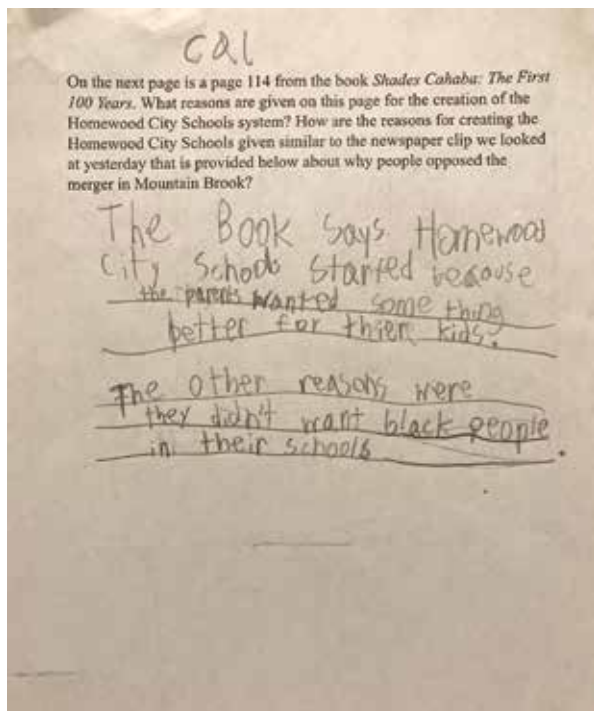 cal
On the next page is a page 114 from the book Shades Cahaba: The First
100 Years. What reasons are given on this page for the creation of the
Homewood City Schools system? How are the reasons for creating the
Homewood City Schools given similar to the newspaper clip we looked
at yesterday that is provided below about why people opposed the
merger in Mountain Brook?
The Book Says Homewood
City Schools Started because
the parents wanted some thing
better for thier kids.
The other reasons were
they didn't want black people
in their schools.